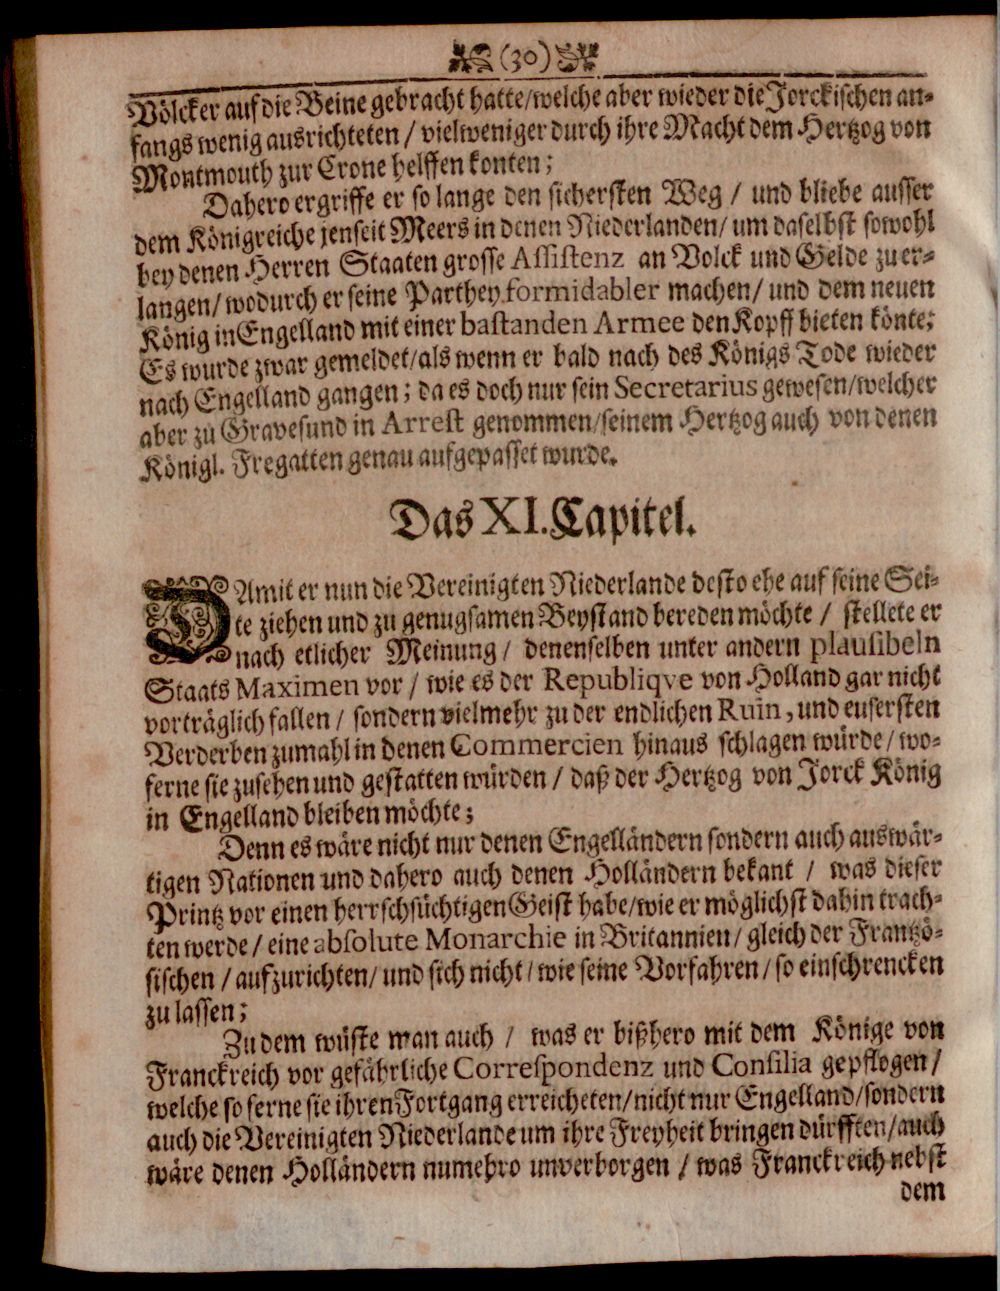 (30)
Völcker auf die Beine gebracht hatte/welche aber wieder die Jorckischen an-
fangs wenig ausrichteten / vielweniger durch ihre Macht dem Hertzog von
Montmouth zur Crone helffen konten;
Dahero ergriffe er so lange den sichersten Weg / und bliebe ausser
dem Königreiche jenseit Meers in denen Niederlanden/ um daselbst sowohl
bey denen Herren Staaten grosse Assistenz an Volck und Gelde zu er-
langen/ wodurch er seine Parthey formidabler machen/ und dem neuen
König in Engelland mit einer bastanden Armee den Kopff bieten könte;
Es wurde zwar gemeldet/als wenn er bald nach des Königs Tode wieder
nach Engelland gangen; da es doch nur sein Secretarius gewesen/welcher
aber zu Gravesund in Arrest genommen/seinem Hertzog auch von denen
Königl. Fregatten genau aufgepasset wurde.
Das XI. Capitel.
DAmit er nun die Vereinigten Niederlande desto ehe auf seine Sei-
te ziehen und zu genugsamen Beystand bereden möchte / stellete er
nach etlicher Meinung / denenselben unter andern plausibeln
Staats Maximen vor / wie es der Republiqve von Holland gar nicht
vorträglich fallen / sondern vielmehr zu der endlichen Ruin, und eusersten
Verderben zumahl in denen Commercien hinaus schlagen würde / wo-
ferne sie zusehen und gestatten würden / daß der Hertzog von Jorck König
in Engelland bleiben möchte;
Denn es wäre nicht nur denen Engelländern sondern auch auswär-
tigen Nationen und dahero auch denen Holländern bekant / was dieser
Printz vor einen herrschsüchtigen Geist habe/wie er möglichst dahin trach-
ten werde / eine absolute Monarchie in Britannien/ gleich der Frantzö-
sischen / aufzurichten/ und sich nicht / wie seine Vorfahren / so einschrencken
zu lassen;
Zu dem wüste man auch / was er bißhero mit dem Könige von
Franckreich vor gefährliche Correspondenz und Consilia gepflogen /
welche so ferne sie ihren Fortgang erreicheten/nicht nur Engelland/sondern
auch die Vereinigten Niederlande um ihre Freyheit bringen dürfften/auch
wäre denen Holländern numehro unverborgen / was Franckreich nebst
dem